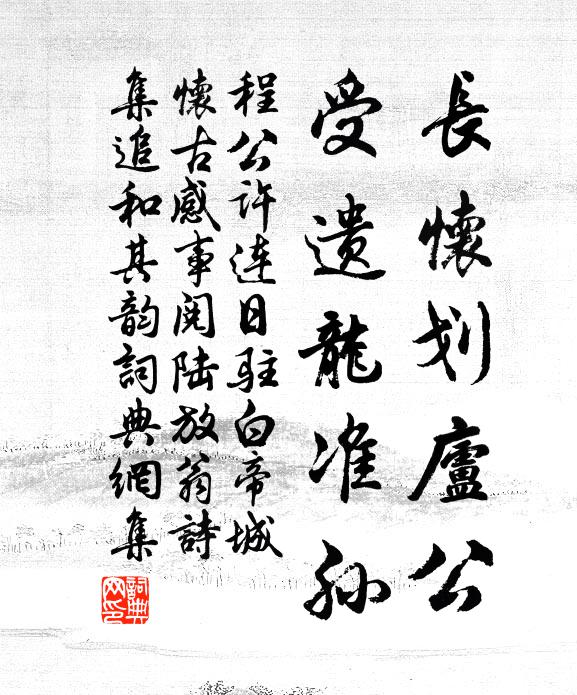 長懷划廬公
受遺龍准孫
程公許連日駐白帝城
懷古感事閱陆放翁詩
集追和其韵詞典網集
詞典网印